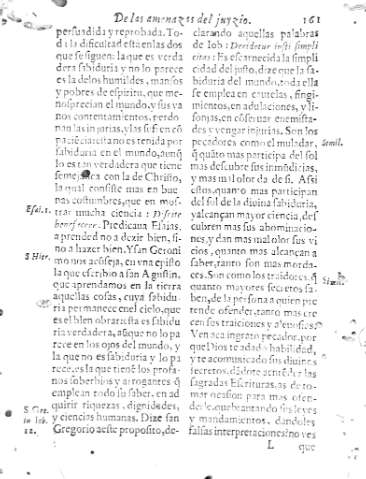 De las amenazas del juyzio. 161
persuadida y reprobada. To-
da la dificultad esta en las dos
que se siguen: la que es verda
dera sabiduria y no lo parece
es la de los humildes, mansos
y pobres de espiritu, que me-
nosprecian el mundo, y sus va
nos contentamientos, perdo-
nan las injurias, y las sufren cõ
paciẽcia: esta no es tenida por
sabiduria en el mundo, aunq̃
lo es tan verdadera que tiene
semejãça con la de Christo,
la qual consiste mas en bue
nas costumbres, que en mos-
Esai. 1. trar mucha ciencia: Discite
benefacere. Predicaua Esaias,
aprended no a dezir bien, si-
no a hazer bien. Y san Geroni
S. Hier. mo nos acõseja, en vna epistò
la que escribio a san Agustin,
que aprendamos en la tierra
aquellas cosas, cuya sabidu-
ria permanece en el cielo, que
es el bien obrar: esta es sabidu
ria verdadera, aũque no lo pa
rece en los ojos del mundo, y
la que no es sabiduria y lo pa
rece, es la que tienẽ los profa-
nos soberbios y arrogantes q̃
emplean todo su saber, en ad
S. Gre. quirir riquezas, dignidades,
in Iob. y ciencias humanas. Dize san
12. Gregorio a este proposito, de-
clarando aquellas palabras
de Iob: Deridetur iusti simpli
citas: Es escarnecida la simpli
cidad del justo, dize que la sa-
biduria del mundo, toda ella
se emplea en cautelas, fingi-
mientos, en adulaciones, y li-
sonjas, en cõseruar enemista-
des y vengar injurias. Son los
pecadores como el muladar, Simil.
q̃ quãto mas participa del sol
mas descubre sus inmũdicias,
y mas mal olor da de si. Assi
estos, quanto mas participan
del sol de la diuina sabiduria,
y alcançan mayor ciencia, des
cubren mas sus abominacio-
nes, y dan mas mal olor sus vi
cios, quanto mas alcançan a
saber, tanto son mas morda-
ces. Son como los traidores, q̃
quanto mayores secretos sa- Simil.
ben, de la persona a quien pre
tende ofender, tanto mas cre
cen sus traiciones y aleuosias.
Ven aca ingrato pecador, por
que Dios te a dado habilidad,
y te a comunicado sus diuinos
secretos, dãdote a entẽder las
sagradas Escrituras, as de to-
mar ocasion para mas ofen-
derle, quebrantando sus leyes
y mandamientos, dandoles
falsas interpretaciones? no ves
L que